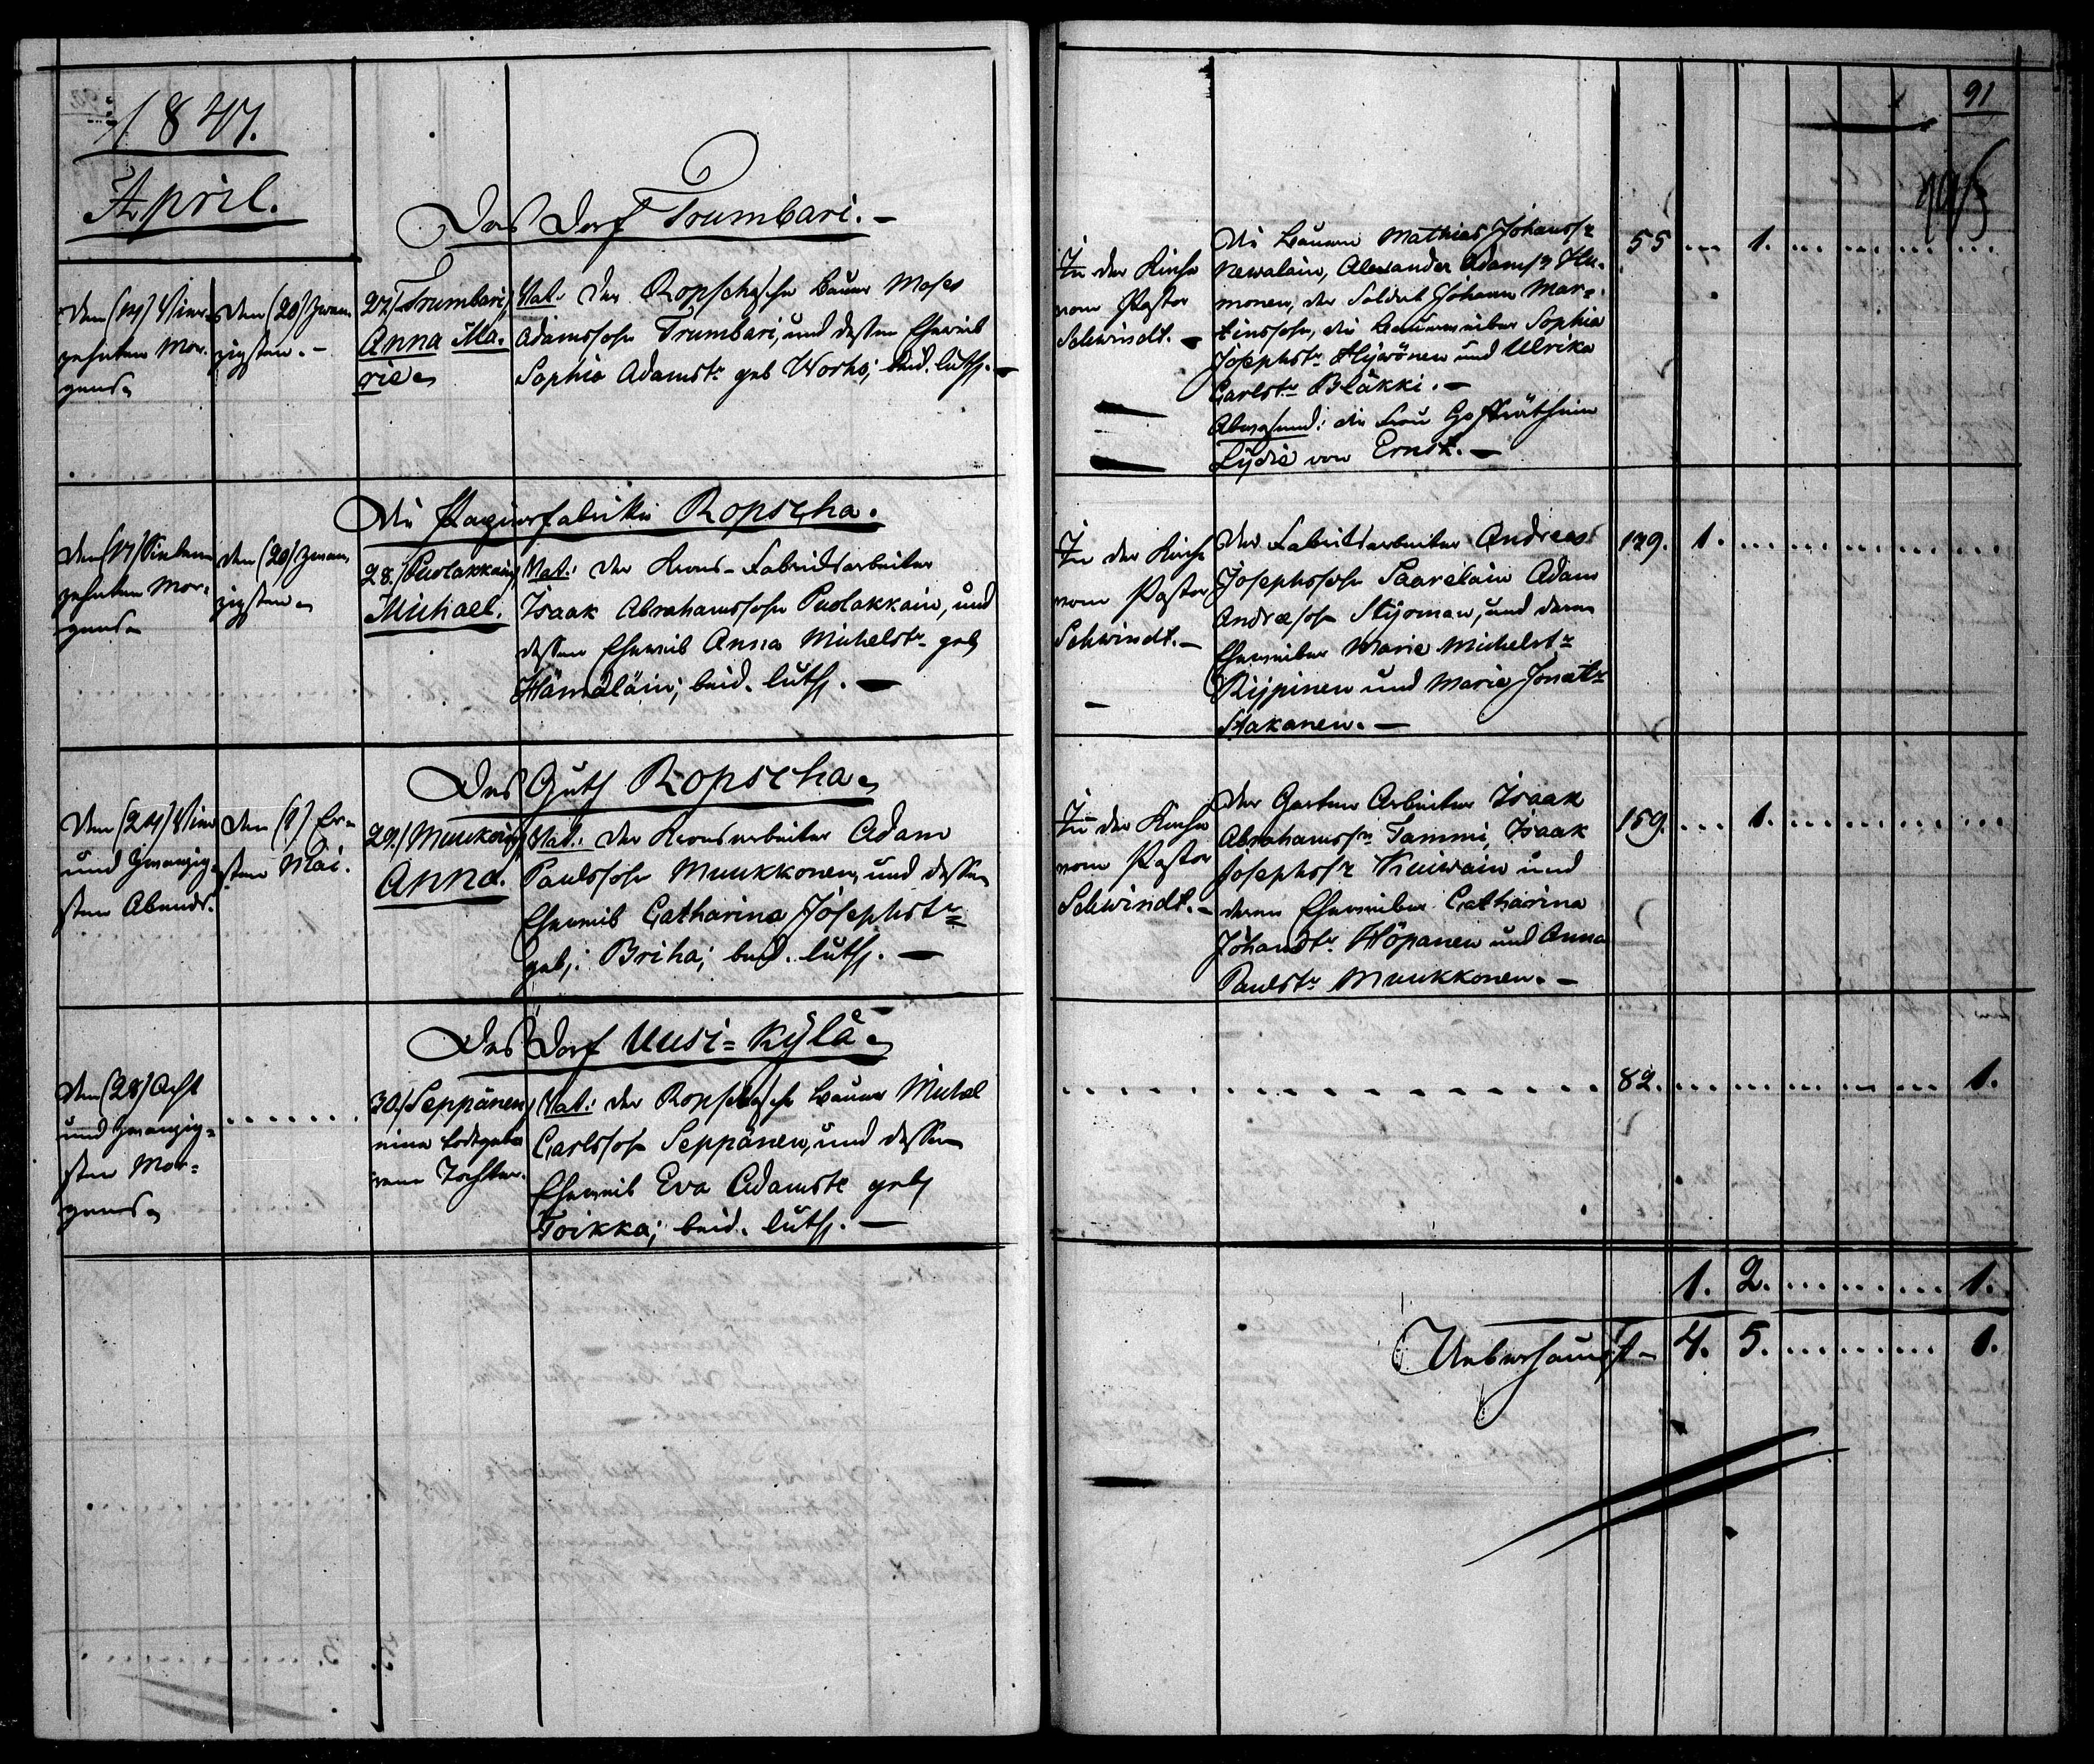 1847.
April.
91
Das Dorf Trumbari. -
Den (14) Vier-
zehnten Mor-
gens.
Den (20) Zwan-
zigsten. -
27.) Trumbari,
Anna Ma-
rie.
Vat. Der Ropschasche Bauer Moses
Adamssohn Trumbari, und dessen Eheweib
Sophia Adamstr. geb Worho; beid. luth. -
In der Kirche
vom Pastor
Schwindt. -
Die Bauern Mathias Johanss.
Newalain, Alexander Adams.
monen, der Soldat Johann Mar-
tinssohn, die Bauerweiber Sophia
Josephstr. Hywönen und Ulrika
Carlstr. Bläkki. -
Abwesend: die Frau Hofräthin
Lydia von Ernst. -
55 ... 1. ...
Die Papierfabrike Ropscha.
Den (17) Sieben-
zehnten Mor-
gens.
Den (20) Zwan-
zigsten.
28.) Puolakkain,
Michael.
Vat. Der Krons-Fabrikarbeiter
Isaak Abrahamssohn Puolakkain, und
dessen Eheweib Anna Michelstr. geb
Hämäläin; beid. luth. -
In der Kirche
vom Pastor
Schwindt. -
Der Fabrikarbeiter Andreas
Josephssohn Saarelain Adam
Andreassohn Styrman, und deren
Eheweiber Marie Michelstr.
Kijpinen und Marie
Hakanen. -
139. 1. ...
Das Guth Ropscha.
Den (24) Vier
und Zwanzig-
sten Abends.
Den (1) Er-
sten Mai.
29.) Muukkonen,
Anna.
Vat. Der Kronsarbeiter Adam
Paulssohn Muukkonen, und dessen
Eheweib Catharina Josephstr.
geb. Briha; beid. luth. -
In der Kirche
vom Pastor
Schwindt. -
Der Garten Arbeiter Isaak
Abrahamss. Tammi, Isaak
Josephs. Kiuwain und
deren Eheweiber Catharina
Johanstr. Höpanen und Anna
Paulstr. Muukkonen. -
159. ... 1. ...
Das Dorf Uusi-Kylä.
Den (28) Acht
und Zwanzig-
sten Mor-
gens.
......
30.) Seppänen,
eine todtgebo-
rene Tochter.
Vat. Der Ropschasche Bauer Michel
Carlssohn Seppänen, und dessen
Eheweib Eva Adamstr. geb
Toikka; beid. luth. -
82. ... 1.
1. 2. ... 1.
Ueberhaupt - 4. 5. ... 1.